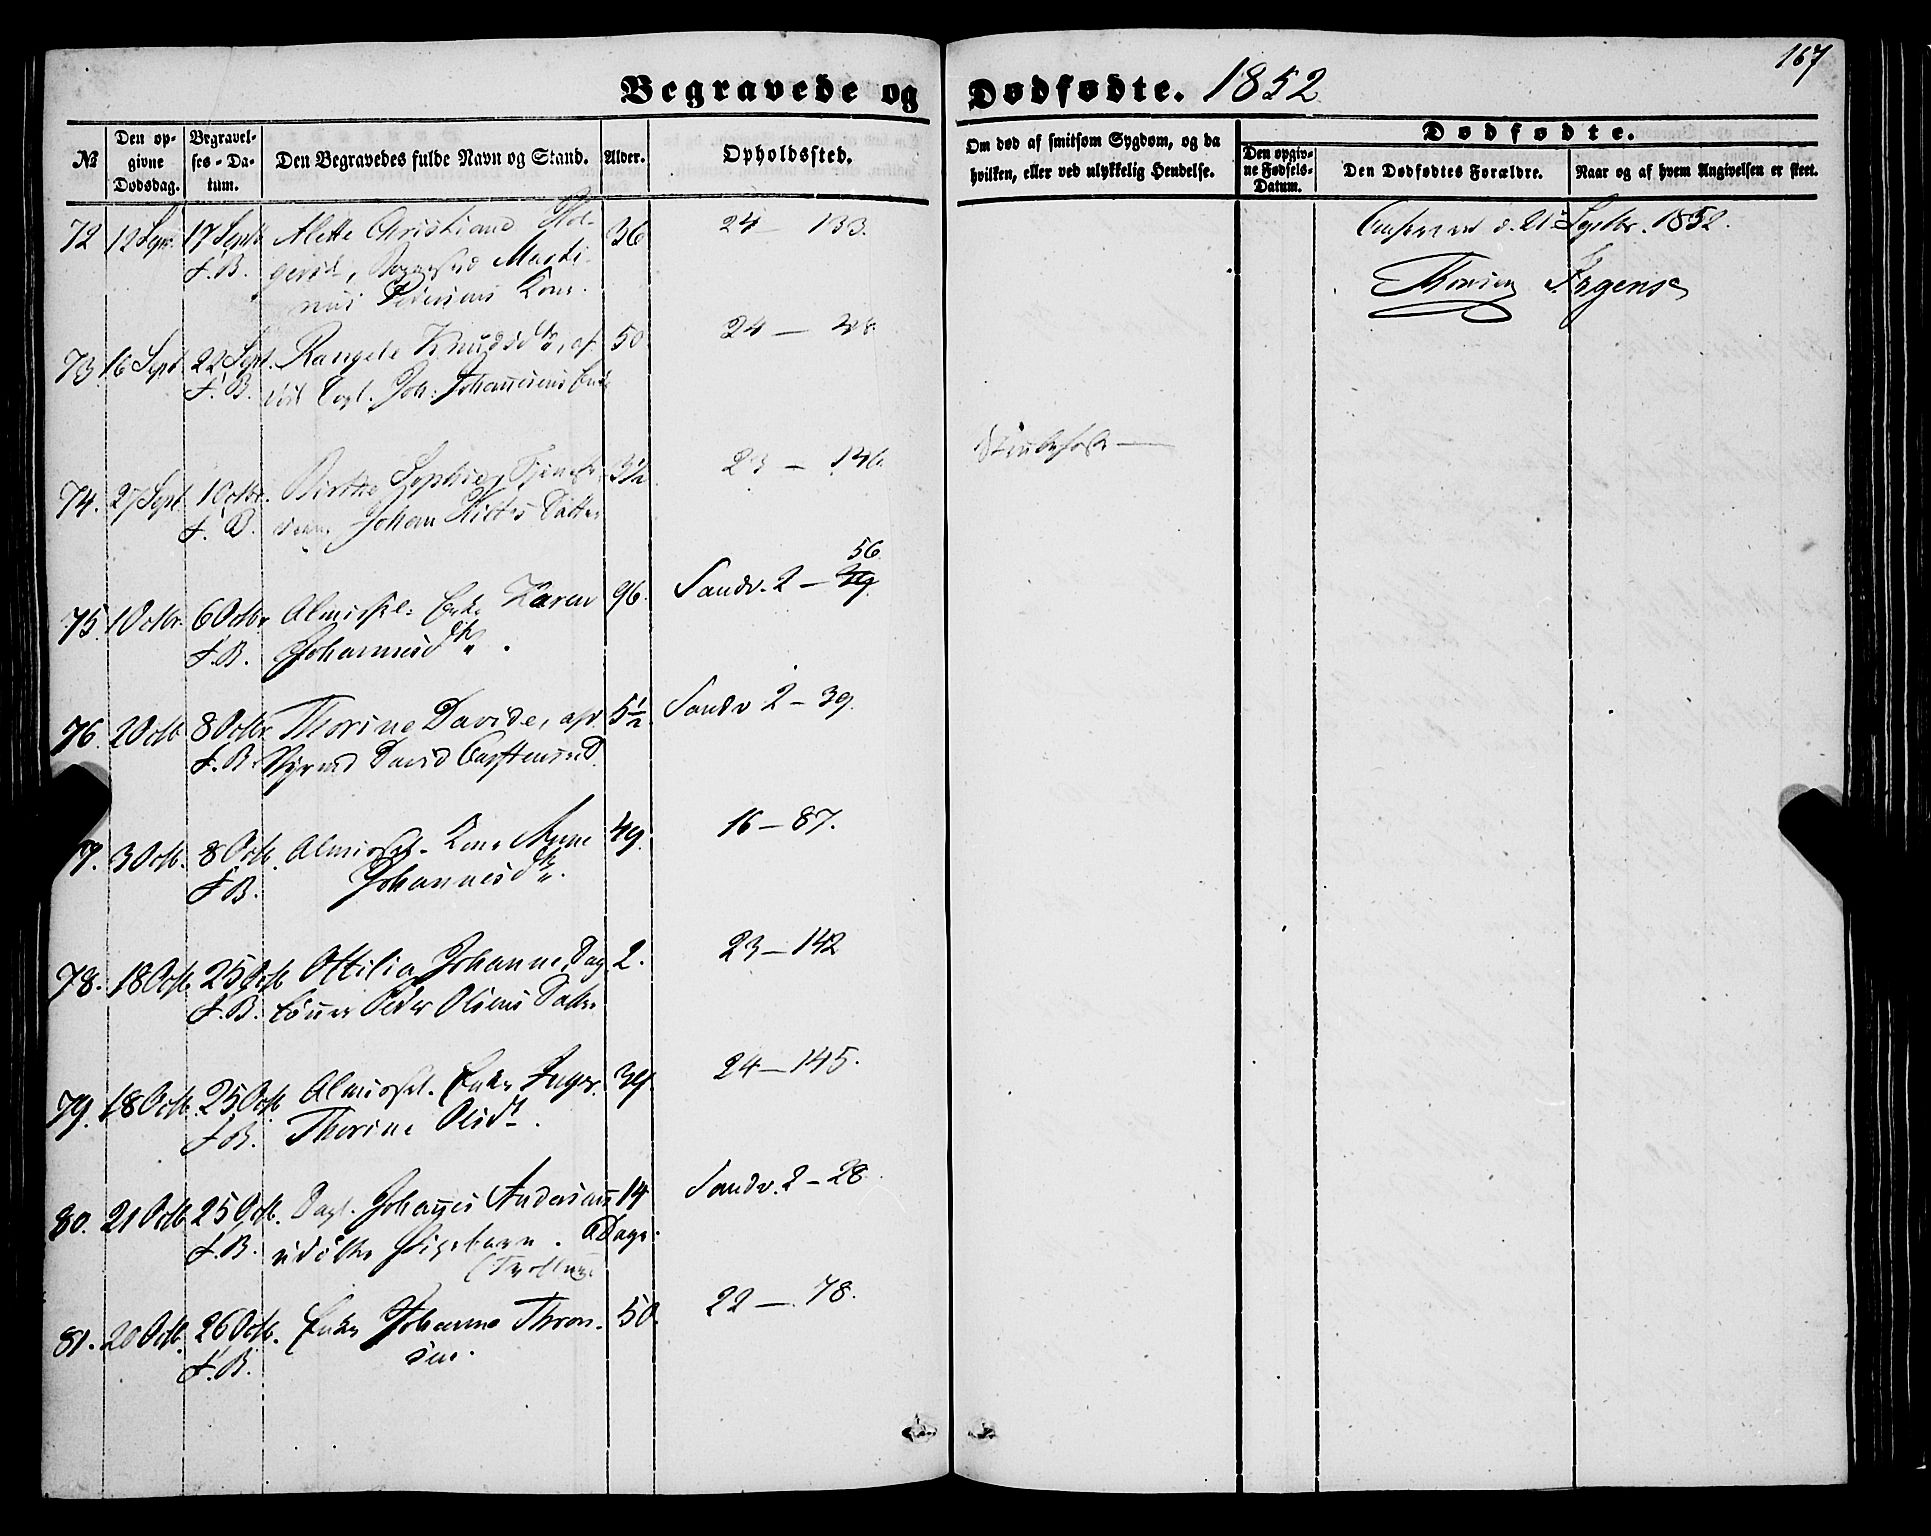 167
Begravede og Dødfødte. 1852
№
Den opgivne Dødsdag.
Begravelses-Datum.
Den Begravedes fulde Navn og Stand.
Alder.
Opholdssted.
Om død af smitsom Sygdom, og da hvilken, eller ved ulykkelig Hendelse.
Dødfødte.
Den opgivne Fødsels-Datum.
Den Dødfødtes Forældre.
Naar og af hvem Angivelsen er skeet.
72 12 Sept. 17 Sept. Alette Christiane Hol- 36 24 — 133.
F.B. Marti-
nus Pedersens Kone.
d. 21 Septbr. 1852.
73. 16 Sept. 22 Sept. Rangele Knudsd., af- 50
F.B. Joh. Johannesens Enke
74. 27 Sept. 1 Octbr. Birthe Sophie, 3½ 23 —
F.B. Johan Datter
Strubehoste —
56
75. 1 Octbr. 6 Octbr. Almisl. Enke Karen 96. Sandv. 2 —
F.B. Johannesdtr.
76. 2 Octb. 8 Octbr. Thorine Davide, 5½ Sandv. 2 – 39.
F.B. David D.
3 Octb. 8 Octb. Almissl. Kone Anne 49. 16 — 87.
F.B. Johannesdtr.
78. 18 Octb. 25 Octb. Ottilia Johanne, Dag- 2. 23 — 142
F.B. Peder Olsens Datter
79. 18 Octb. 25 Octb. Almissl. Enke Inger 39. 24 — 145.
F.B. Thorine Olsdt.
80. 21 Octb. 25 Octb. Dagl. Johannes Andersens 14 Sandv. 2 – 28
F.B. udøbte Pigebarn. Dage.
81. 20 Octb. 26 Octb. Enke Johanna Thron- 50. 22 — 78.
F.B. sen.